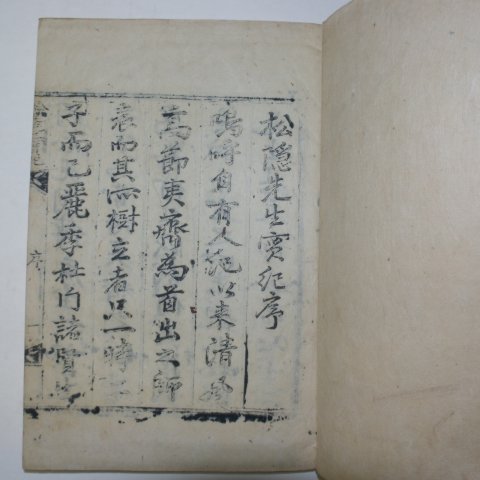 松隠先生實紀序
嗚呼自有人紀以來清風
髙節夷齊為首出之師
表而其所樹立者只一時二
子而已麗季杜門諸賢
序
一